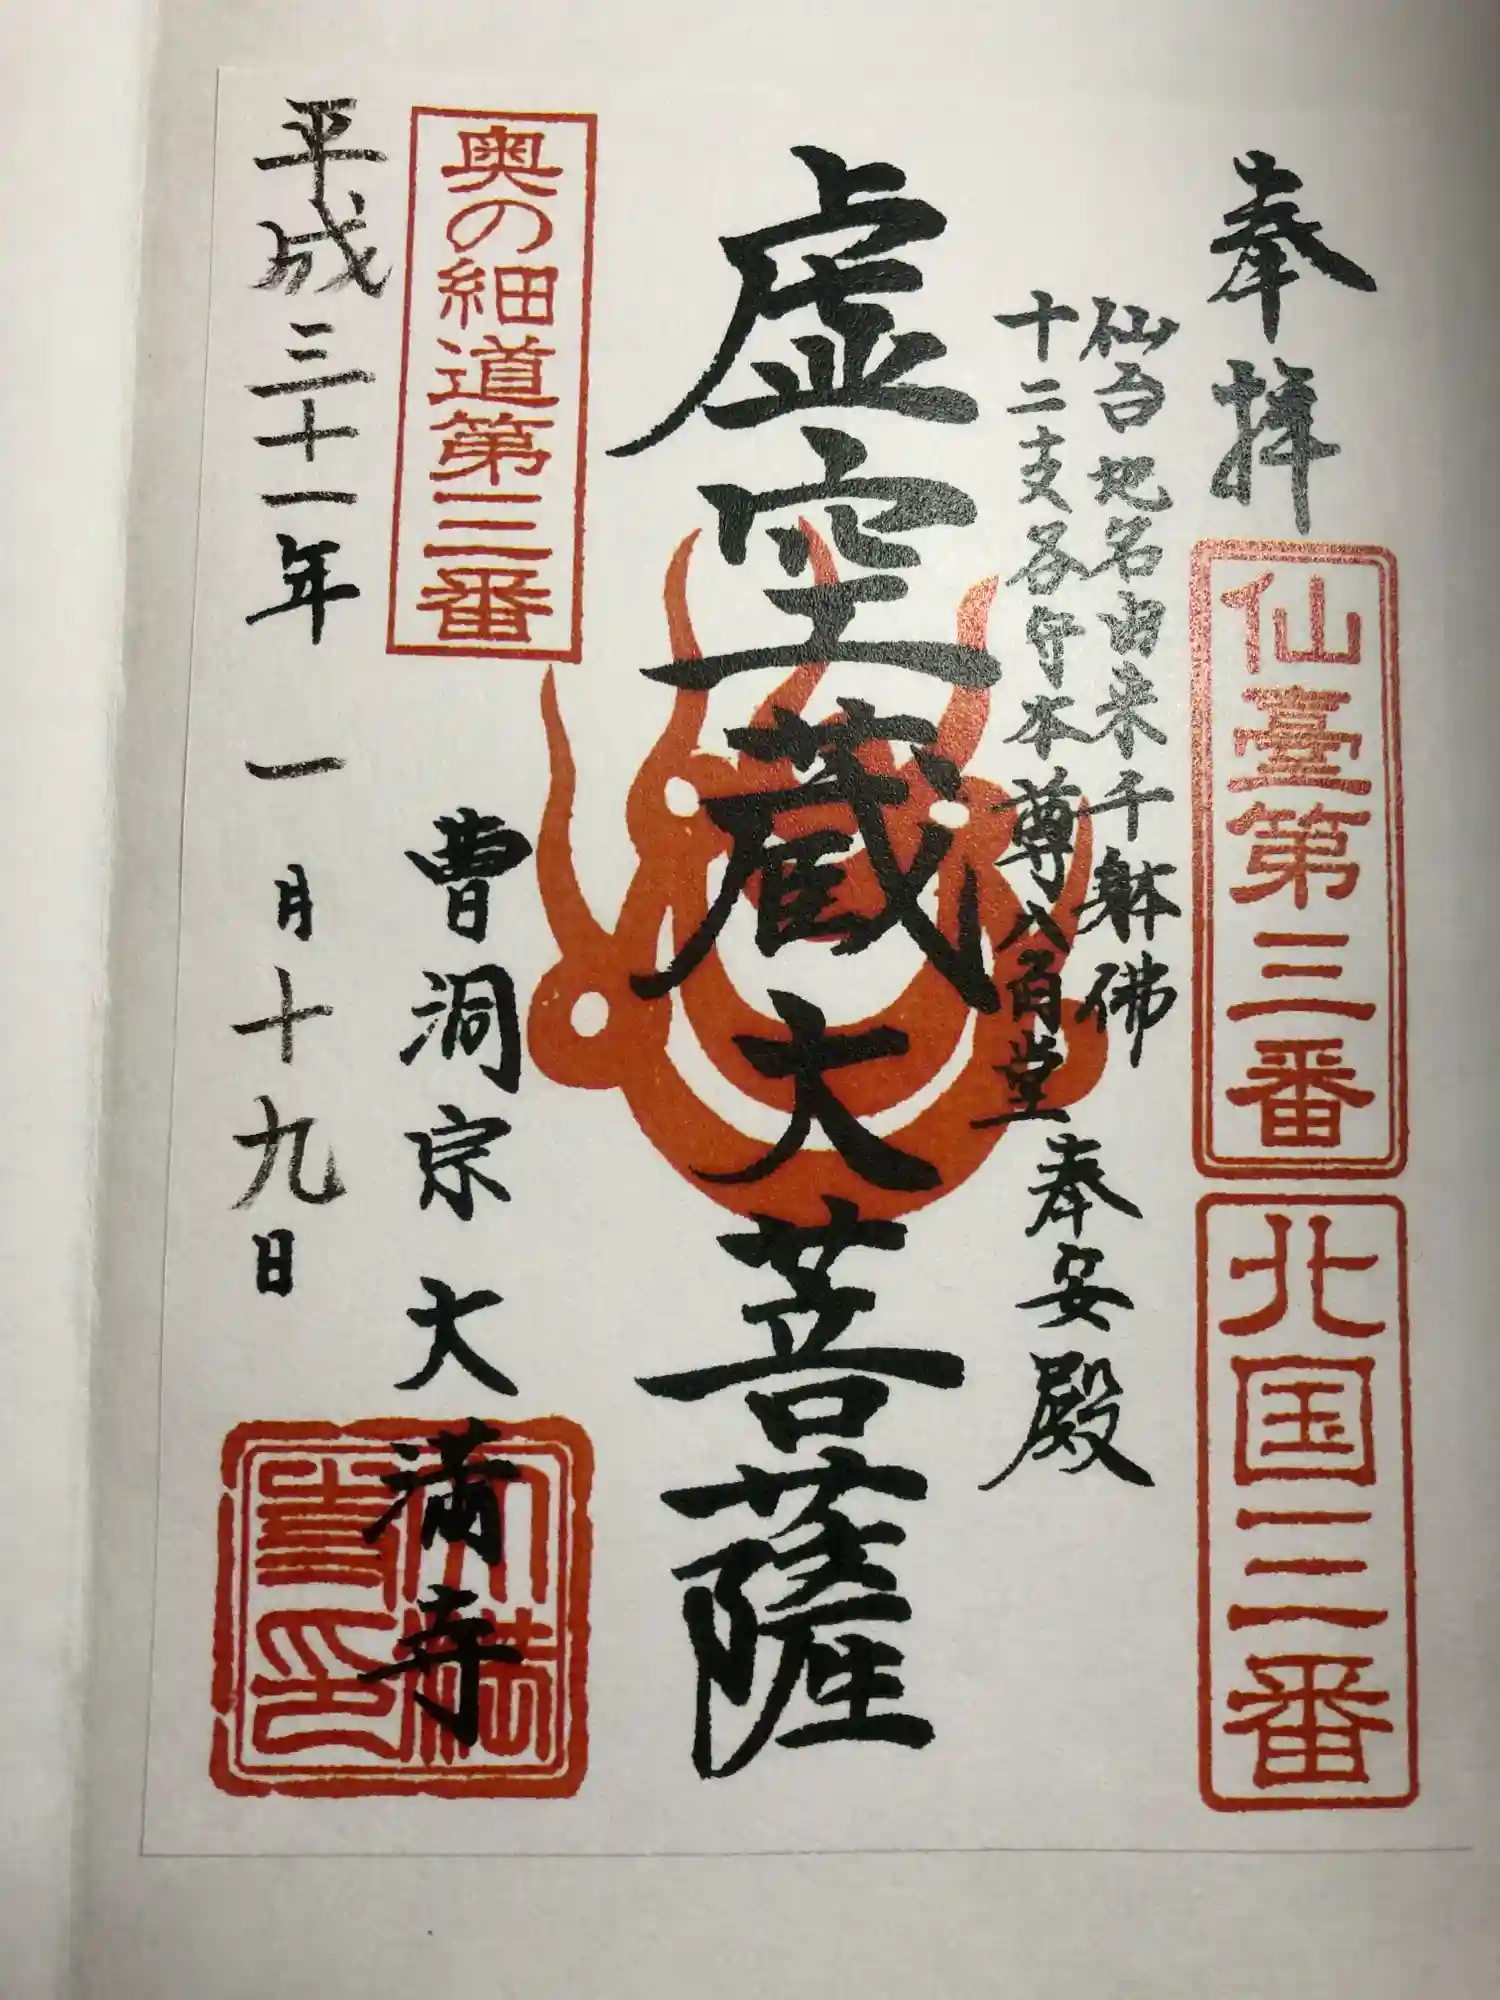 奉拝
仙臺第三番
北国三番
仙台地名由来千躰佛
十二支各守本尊八角堂
奉安殿
虚空蔵大菩薩
奥の細道第三番
曹洞宗大満寺
平成三十一年一月十九日